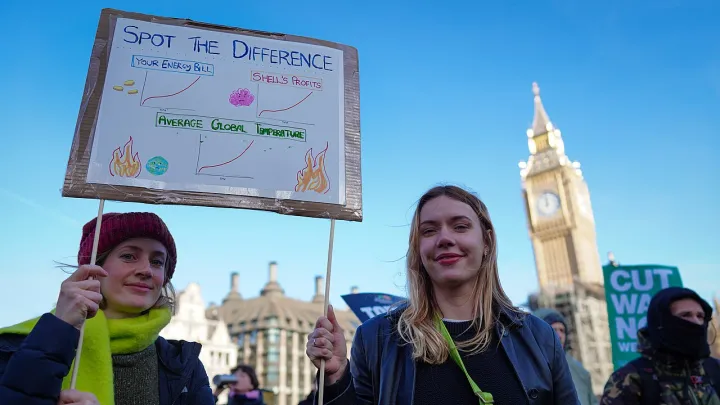 SPOT THE DIFFERENCE
YOUR ENERGY BILL
SHELL'S PROFITS
AVERAGE GLOBAL TEMPERATURE
CUT
WA
NO